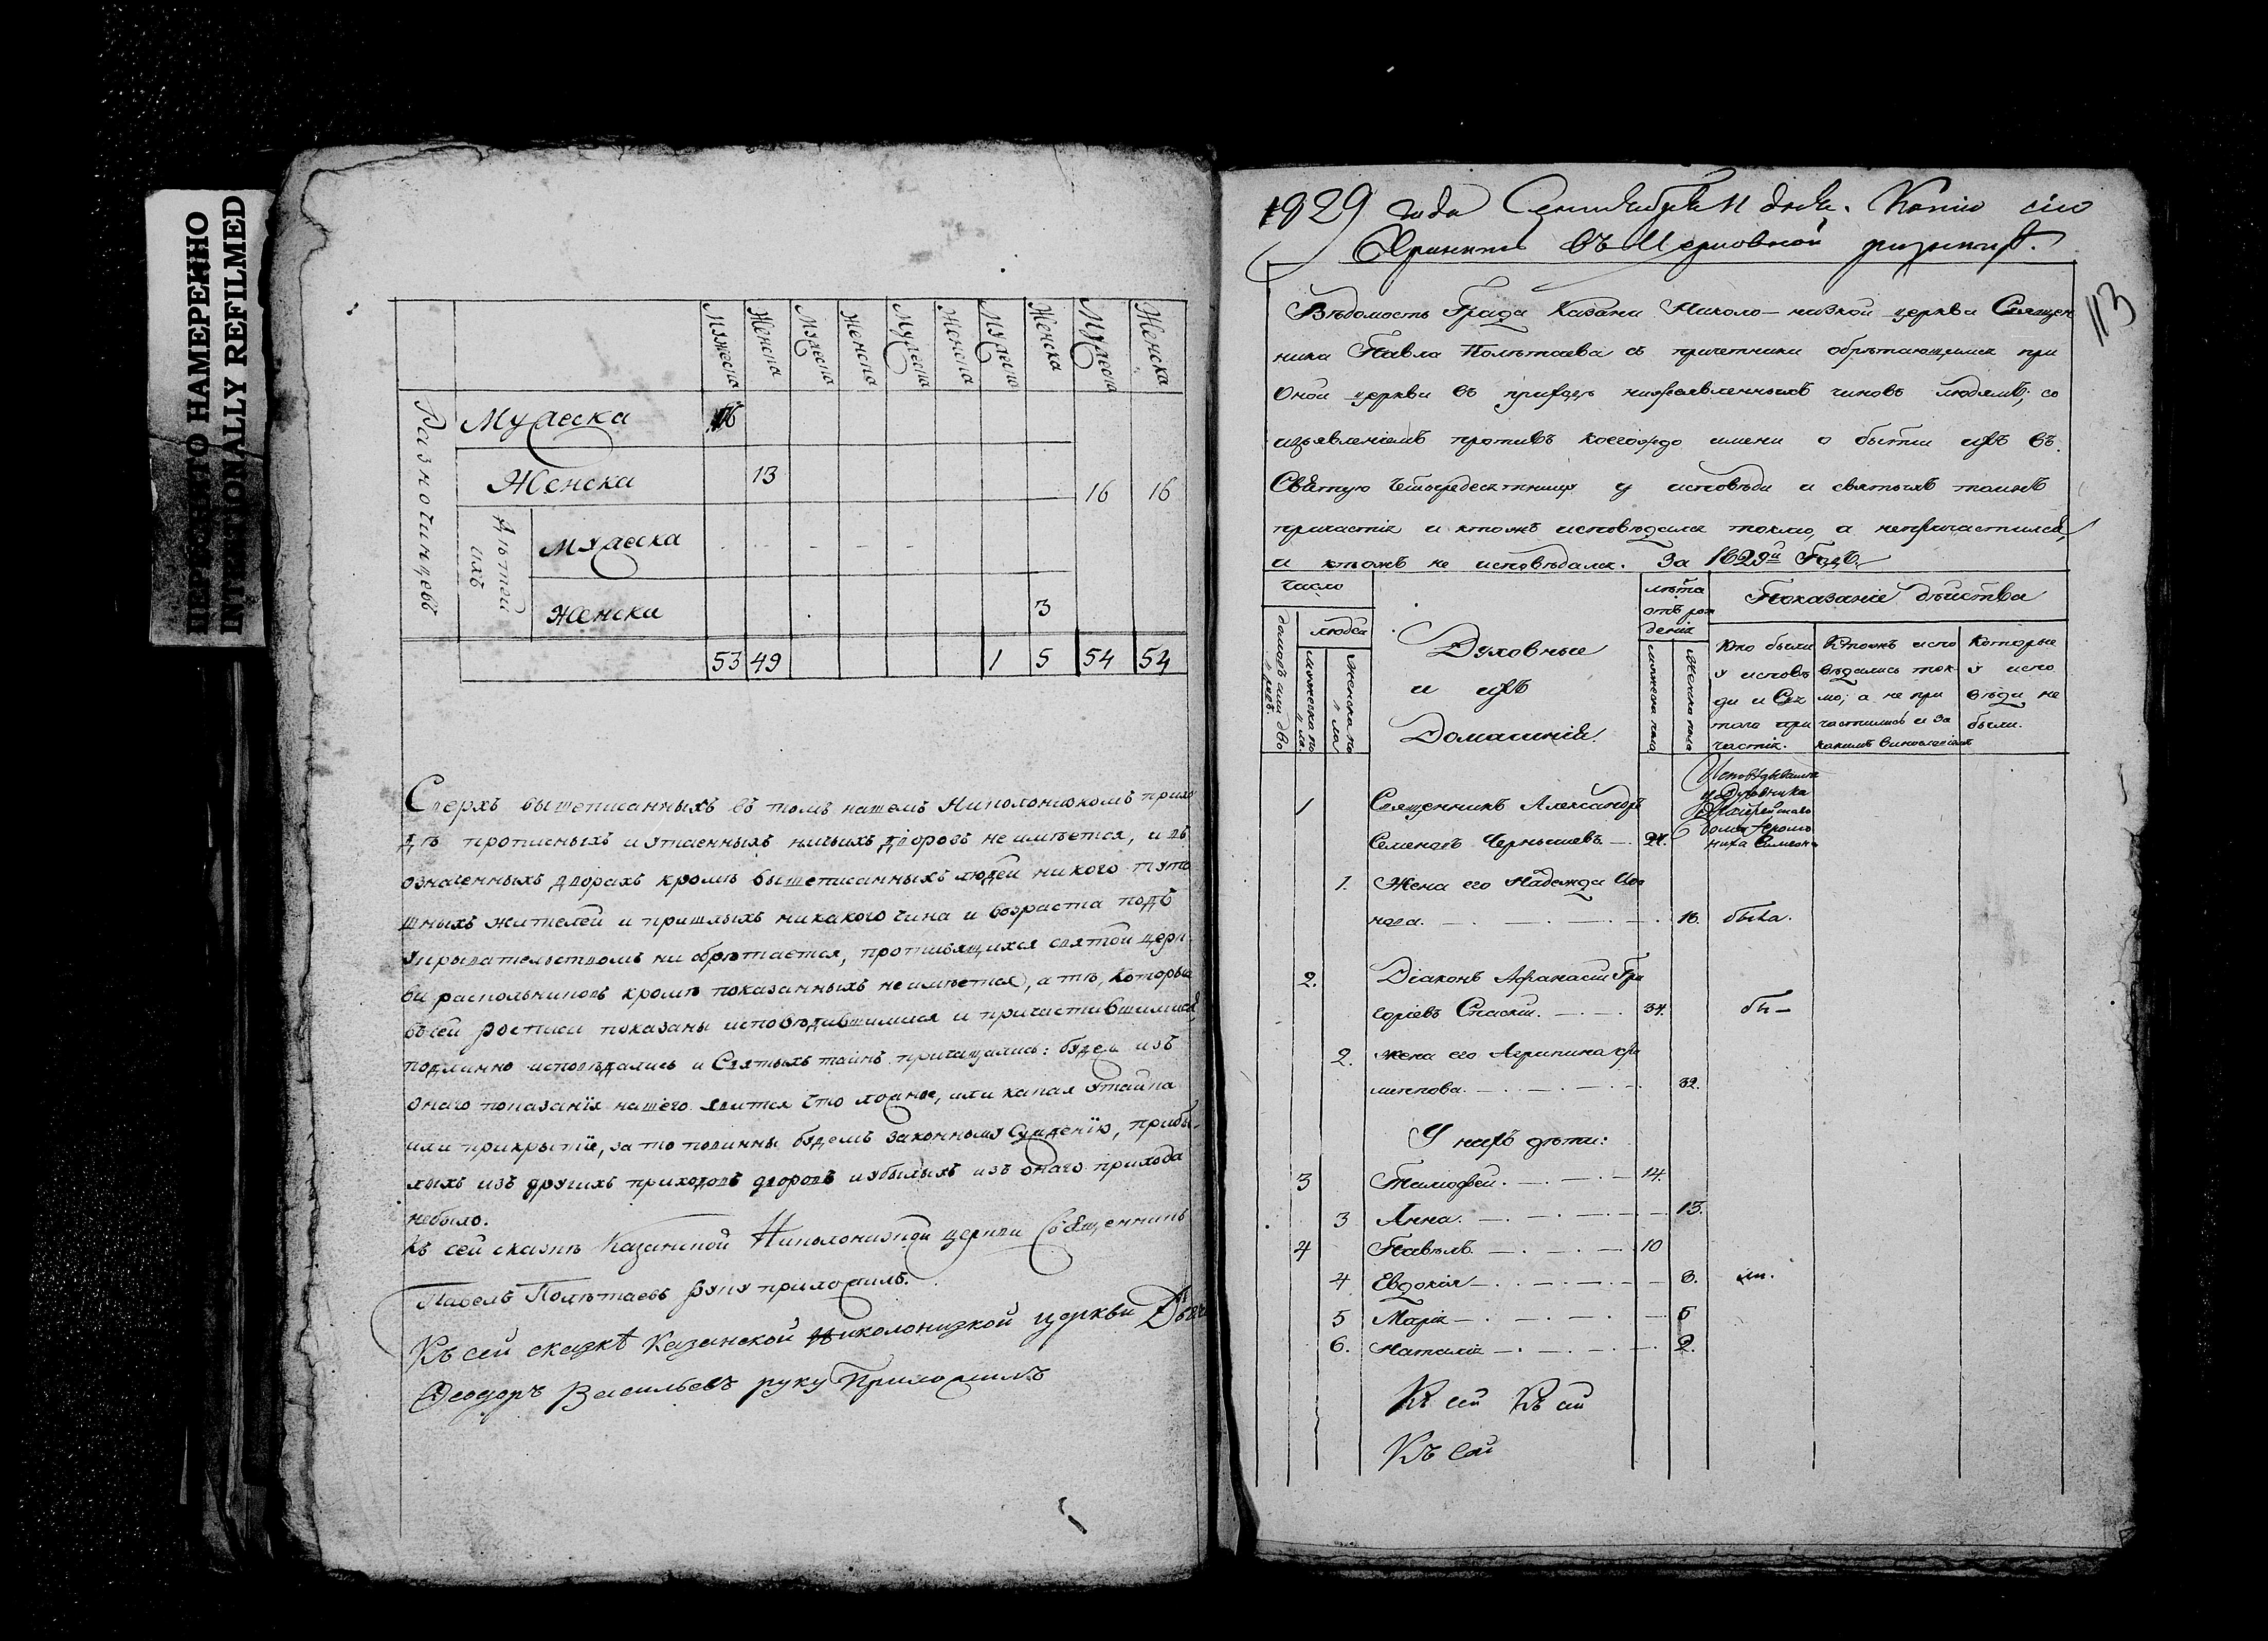 ПЕРЕСНЯТО НАМЕРЕННО
INTENTIONALLY REFILMED
Мужеска Женска Мужеска Женска Мужеска Женска Мужеска Женска Мужеска Женска
Разночинцевъ
Мужеска 16
Женска 13 16 16
Дѣтей ихъ
Мужеска
Женска 3
53 49 1 5 54 54
Сверхъ вышеписанныхъ въ томъ нашемъ Николонискомъ прихо
дѣ прописныхъ и утаенныхъ ничьихъ дворовъ не имѣется, и въ
означенныхъ дворахъ кромѣ вышеписанныхъ людей никого туто
шныхъ жителей и пришлыхъ никакого чина и возраста подъ
укрывательствомъ ни обрѣтается, противящихся святой церк
ви раскольниковъ кромѣ показанныхъ не имѣется, а тѣ, которыя
въ сей росписи показаны исповѣдавшимися и причастившимися,
подлинно исповѣдались и Святыхъ таинъ причащались: будеж изъ
онаго показанія нашего явится что ложное, или какая утайка
или прикрытіе, за то повинны будемъ законному сужденію, прибы-
лыхъ изъ другихъ приходовъ дворовъ и убылыхъ изъ онаго прихода
небыло.
Къ сей сказкѣ Казанской Николонизкой церкви Священникъ
Павелъ Полѣтаевъ руку приложилъ.
Къ сей сказкѣ Казанской Николонизкой церкви
Ѳеодоръ Васильевъ руку Приложилъ
1829 года Сентября 11 дня. Копію сію
Хранить въ Церковной ризницѣ.
113
Вѣдомость Града Казани Николо-низкой церкви Священ
ника Павла Полѣтаева съ причетники обрѣтающимся при
оной церкви въ приходѣ нижеявленныхъ чиновъ людямъ; со
изъявленіемъ противъ коегождо имени о бытіи ихъ въ
Святую Четыредесятницу у исповѣди и святыхъ таинъ
причастія и ктожъ исповѣдался токмо, а непричастился,
и ктожъ не исповѣдался. За 1829й Годъ.
Число
людей
мужеска пола
женска пола
Духовные
и ихъ
Домашніе.
лѣта
отъ рож
денія
мужеска пола
женска пола
Показаніе дѣйства
Кто были
у исповѣ
ди и Свя
таго при
частія.
Ктожъ испо
вѣдались ток-
мо; а не при
частились и за
какимъ виновленіемъ
Которые
у испо
вѣди не
были.
1 Священникъ Александръ
Семеновъ Чернышевъ 24.
Исповѣдывался
у Духовника
Архіерейскаго
дома Іеромо
наха Симеона
1. Жена его Надежда
нова. 18. была.
2. Діаконъ Афанасіи Гри
горіевъ Спаскій. 34. бы-
2. жена его Агрипина
32.
У нихъ дѣти:
3 Тимофей. 14.
3 Анна. 13.
4 Павелъ. 10
4 Евдокія 8.
5 Марія 5
6. Наталія 2.
Къ сей Къ сей
Къ сей